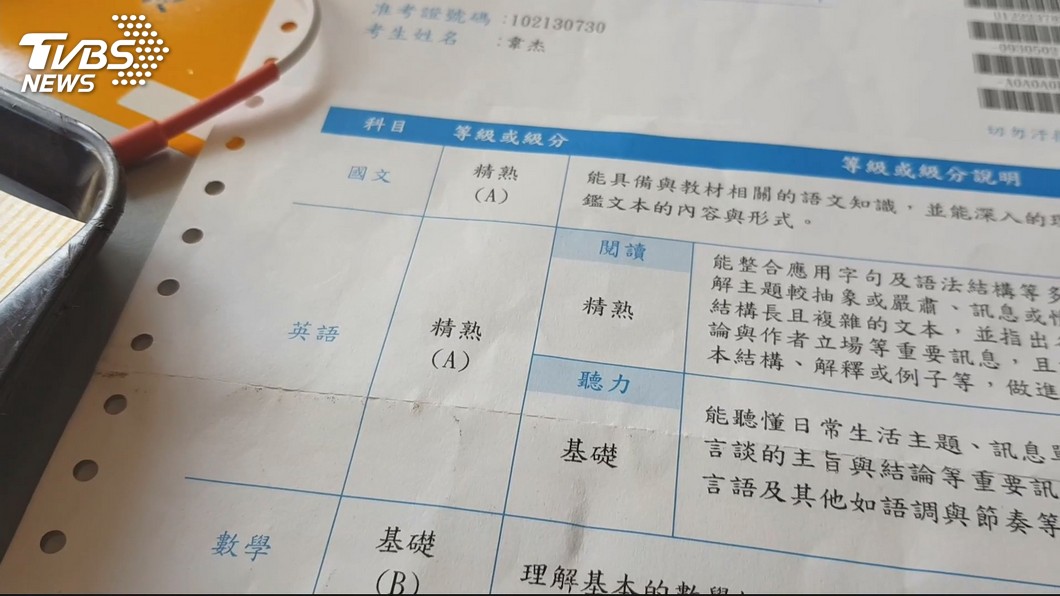 TVBS
NEWS
准考證號碼 :102130730
考生姓名 :韋杰
科目 等級或級分 等級或級分說明
國文 精熟
(A)
能具備與教材相關的語文知識，並能深入的
鑑文本的內容與形式。
英語 精熟
(A)
閱讀
精熟
能整合應用字句及語法結構等多
解主題較抽象或嚴肅、訊息或
結構長且複雜的文本，並指出
論與作者立場等重要訊息，且
本結構、解釋或例子等，做進
聽力
基礎
能聽懂日常生活主題、訊息單
言談的主旨與結論等重要訊
言語及其他如語調與節奏等
數學 基礎
(B)
理解基本的數學